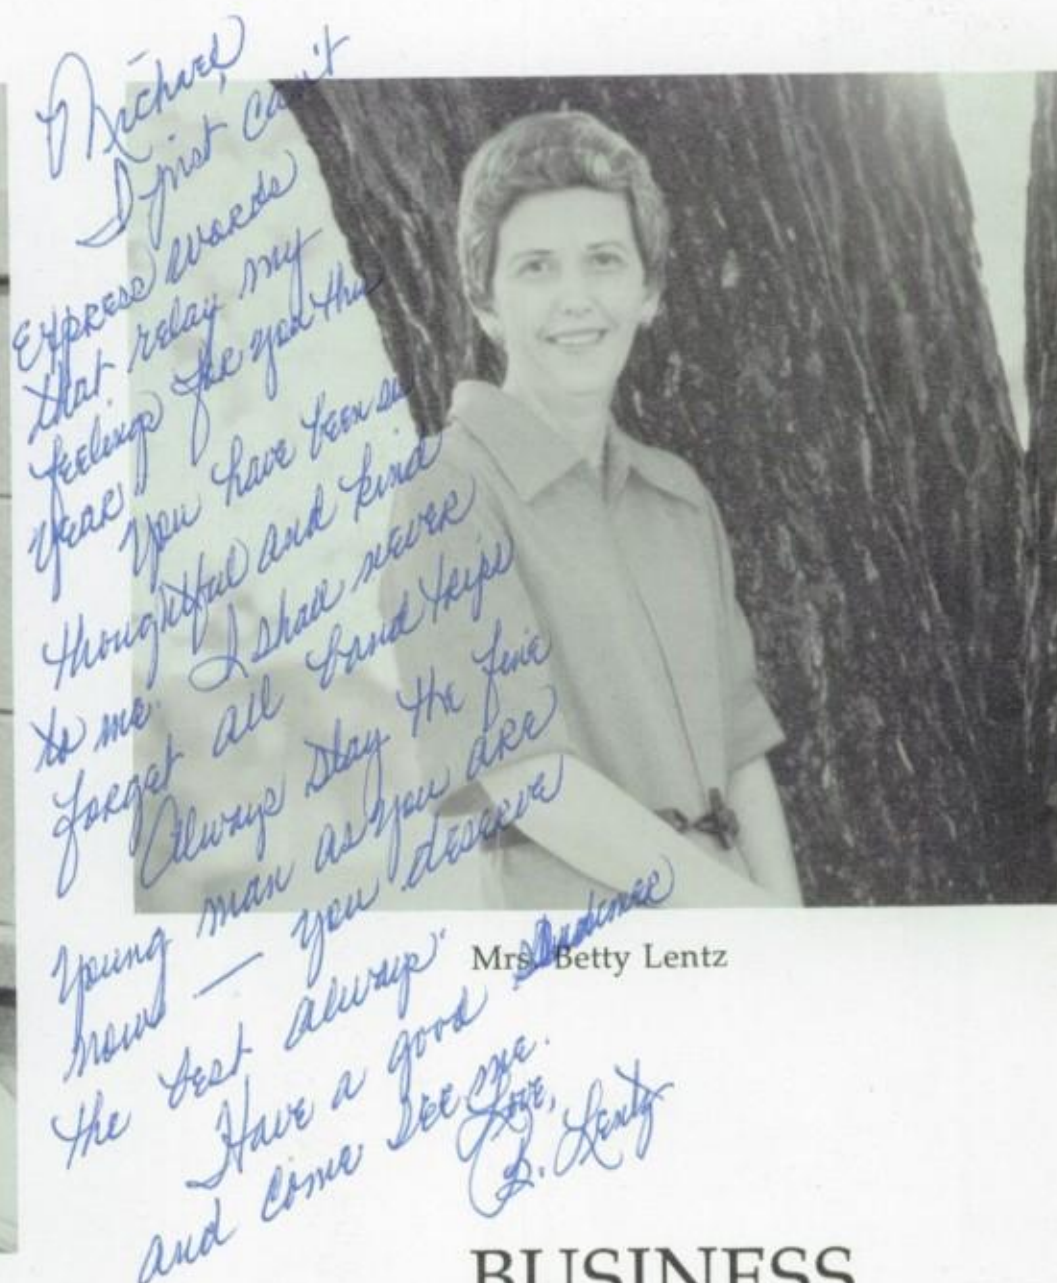 Michael,
I just can't
express words
that relay my
feelings for you thru
year.
You have been so
thoughtful and kind
to me. I shall never
forget all band trips
Always stay the fine
young man as you are
now — you deserve
the best always.
Have a good summer
and come see me.
Love,
B. Lentz
Mrs. Betty Lentz
BUSINESS